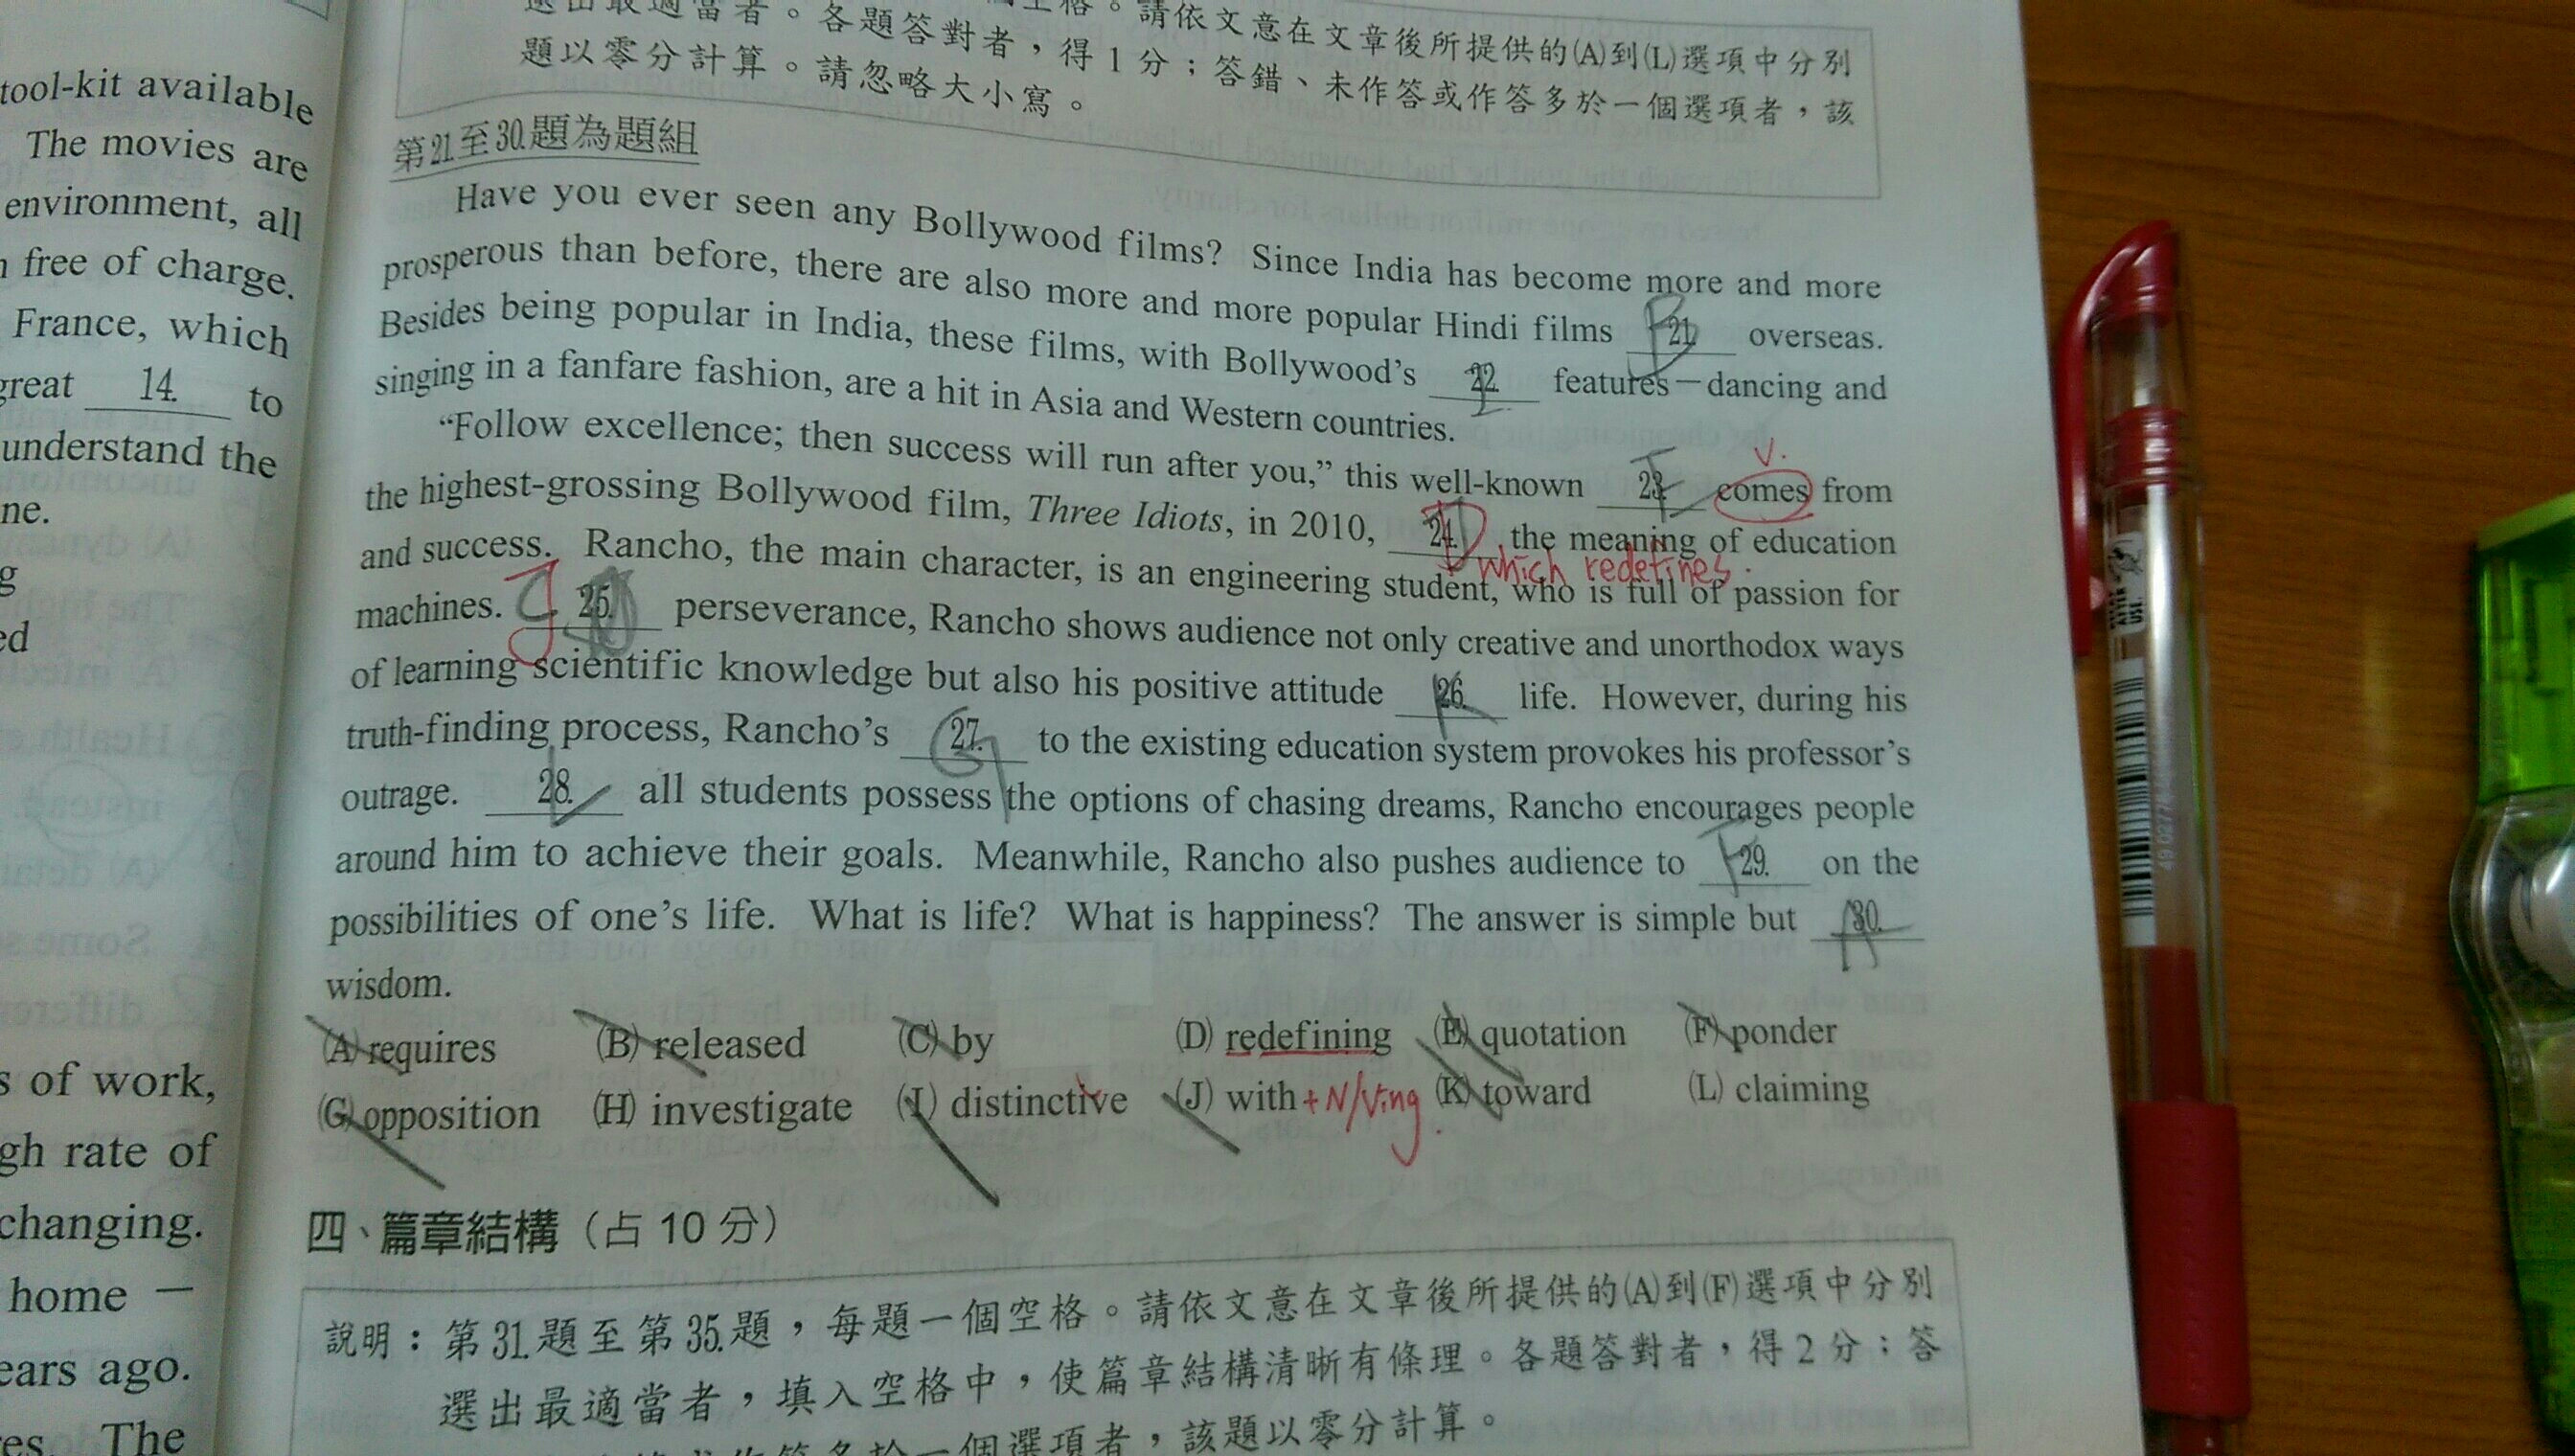 tool-kit available
The movies are
environment, all
free of charge.
France, which
great 14. to
understand the
ne.
g
ed
s of work,
gh rate of
changing.
home —
ears ago.
res. The
選出最適當者。各題答對者，得1分；答錯、未作答或作答多於一個選項者，該
格。請依文意在文章後所提供的(A)到(L)選項中分別
題以零分計算。請忽略大小寫。
第21.至30.題為題組
Have you ever seen any Bollywood films? Since India has become more and more
prosperous than before, there are also more and more popular Hindi films 21. overseas.
B
Besides being popular in India, these films, with Bollywood's 22. features—dancing and
I
singing in a fanfare fashion, are a hit in Asia and Western countries.
V.
"Follow excellence; then success will run after you," this well-known 23. comes from
the highest-grossing Bollywood film, Three Idiots, in 2010, 24. the meaning of education
D
which redefines.
and success. Rancho, the main character, is an engineering student, who is full of passion for
machines. 25. perseverance, Rancho shows audience not only creative and unorthodox ways
J
of learning scientific knowledge but also his positive attitude 26. life. However, during his
K
truth-finding process, Rancho's 27. to the existing education system provokes his professor's
G
outrage. 28. all students possess the options of chasing dreams, Rancho encourages people
L
around him to achieve their goals. Meanwhile, Rancho also pushes audience to 29. on the
F
possibilities of one's life. What is life? What is happiness? The answer is simple but 30.
A
wisdom.
(A) requires (B) released (C) by (D) redefining (E) quotation (F) ponder
(G) opposition (H) investigate (I) distinctive (J) with +N/Ving. (K) toward (L) claiming
四、篇章結構（占10分）
說明：第31.題至第35.題，每題一個空格。請依文意在文章後所提供的(A)到(F)選項中分別
選出最適當者，填入空格中，使篇章結構清晰有條理。各題答對者，得2分；答
作答多於一個選項者，該題以零分計算。